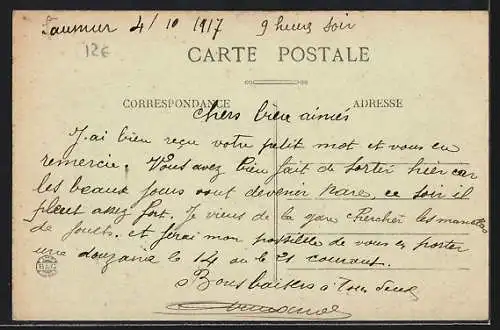 Saumur 4/10 1917 9 heures soir
12€
CARTE POSTALE
CORRESPONDANCE
ADRESSE
Chers bien aimés
J'ai bien reçu votre petit mot et vous en
remercie. Vous avez bien fait de sortir hier car
les beaux jours vont devenir rare, ce soir il
pleut assez fort. Je viens de la gare chercher les
de et ferai mon possible de vous en porter
une douzaine le 14 ou le 21 courant.
Bons baisers à tous deux